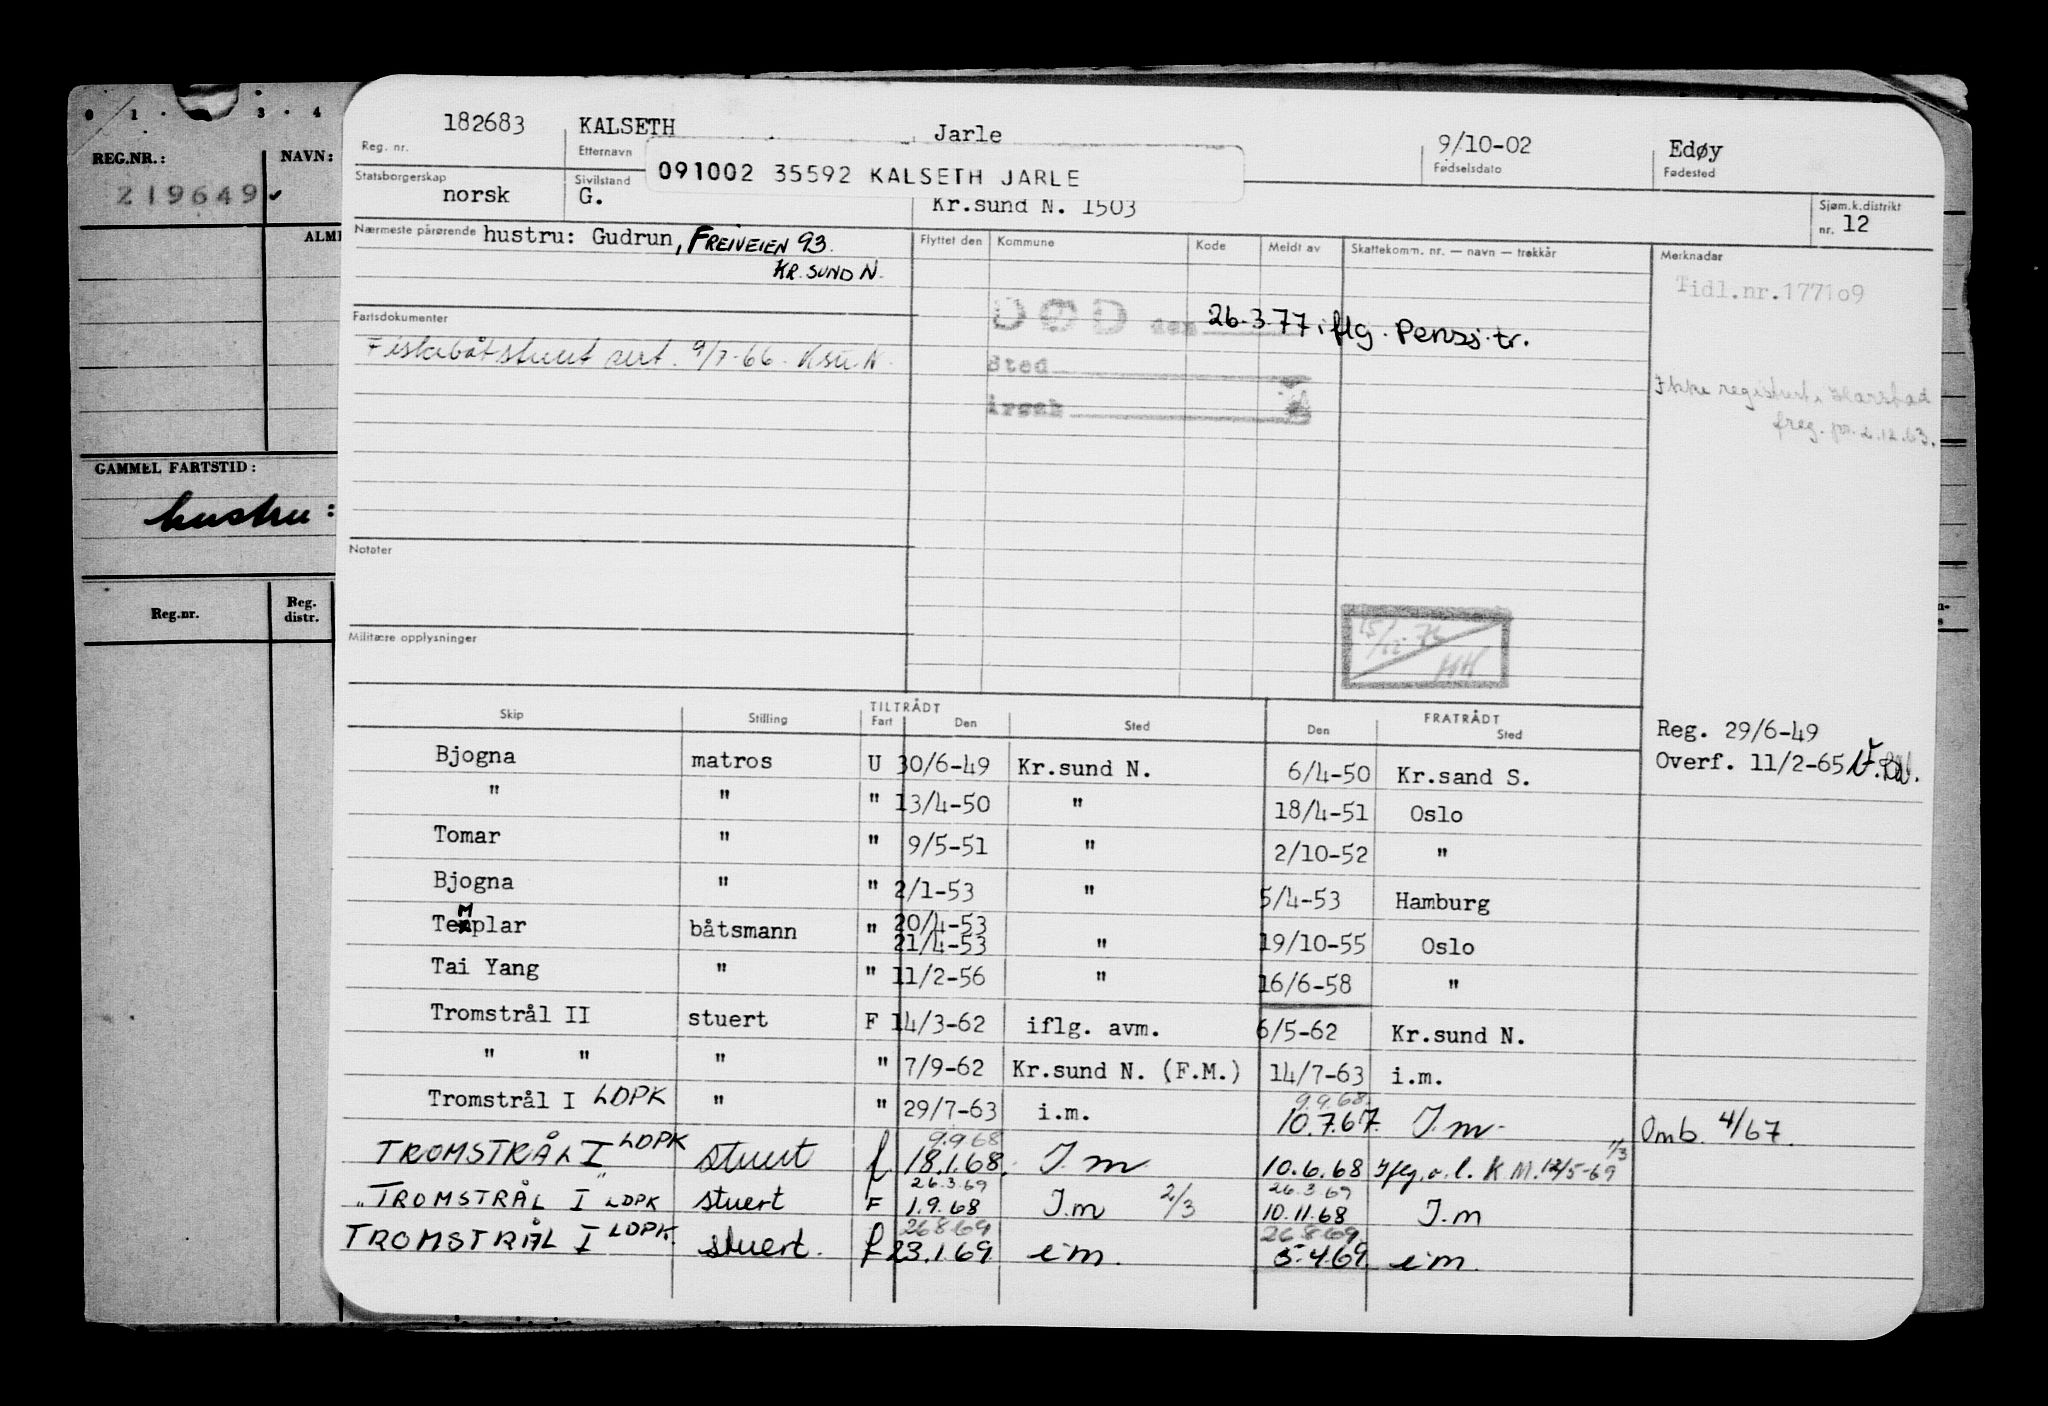 0 1 · 3 · 4
REG.NR.:
NAVN:
219649
ALM
GAMMEL FARTSTID:
hustru:
Reg.nr.
Reg. distr.
182683 KALSETH Jarle 9/10-02 Edøy
Reg. nr. Etternavn Fødselsdato Fødested
091002 35592 KALSETH JARLE
Statsborgerskap Sivilstand Sjøm.k.distrikt
norsk G. Kr.sund N. 1503 nr. 12
Nærmeste pårørende hustru: Gudrun, FREIVEIEN 93.
KR. SUND N.
Flyttet den Kommune Kode Meldt av Skattekomm. nr. — navn — trekkår Merknadar
Tidl.nr.177109
DØD den 26.3.77 iflg. Pensj.tr.
Sted
Årsak
Fartsdokumenter
Fiskebåtstuert sert. 9/7-66. Ksu N
Ikke registrert i Harstad
freg. pr. 2.12.63.
Notater
15/12-76
HH
Militære opplysninger
TILTRÅDT FRATRÅDT
Skip Stilling Fart Den Sted Den Sted
Reg. 29/6-49
Overf. 11/2-65
Bjogna matros U 30/6-49 Kr.sund N. 6/4-50 Kr.sand S.
" " " 13/4-50 " 18/4-51 Oslo
Tomar " " 9/5-51 " 2/10-52 "
Bjogna " " 2/1-53 " 5/4-53 Hamburg
TeMplar båtsmann " 20/4-53
21/4-53 " 19/10-55 Oslo
Tai Yang " " 11/2-56 " 16/6-58 "
Tromstrål II stuert F 14/3-62 iflg. avm. 6/5-62 Kr.sund N.
" " " " 7/9-62 Kr.sund N. (F.M.) 14/7-63 i.m.
Tromstrål I LDPK " " 29/7-63 i.m. 9.9.68. 10.7.67. I.m. Omb. 4/67.
TROMSTRÅL I LDPK stuert f 9.9.68 18.1.68. I.m 10.6.68 Iflg. o.l. K M. 12/5-69 1/3
" TROMSTRÅL I LDPK stuert F 26.3.69 1.9.68 I.m 2/3 26.3.69 10.11.68 I.m
TROMSTRÅL I LDPK. stuert. f 26869 23.1.69 i m. 26869. 5.4.69 i m.